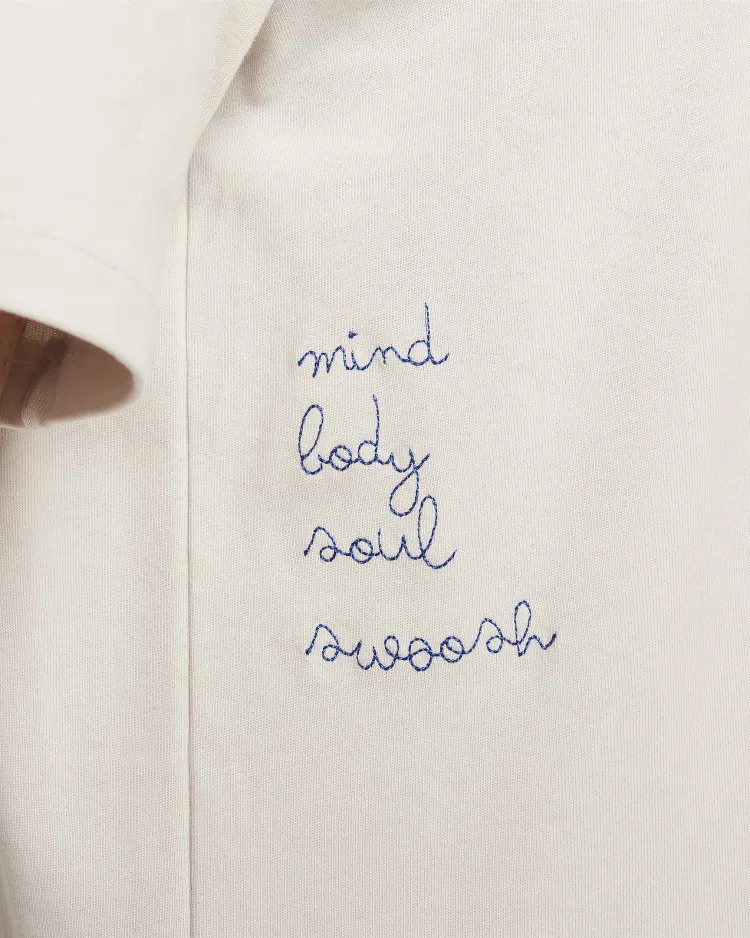 mind
body
soul
swoosh